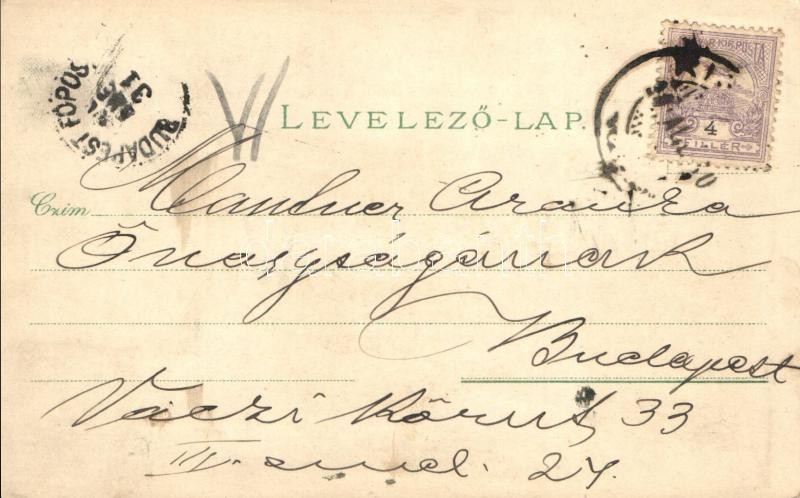 BUDAPEST FŐPOS
31
LEVELEZŐ-LAP.
MAGYAR KIR. POSTA
4
FILLÉR
Czim
Mandner Aranka
Őnagyságának
Budapest
Váczi Körut, 33
III. emel. 24.